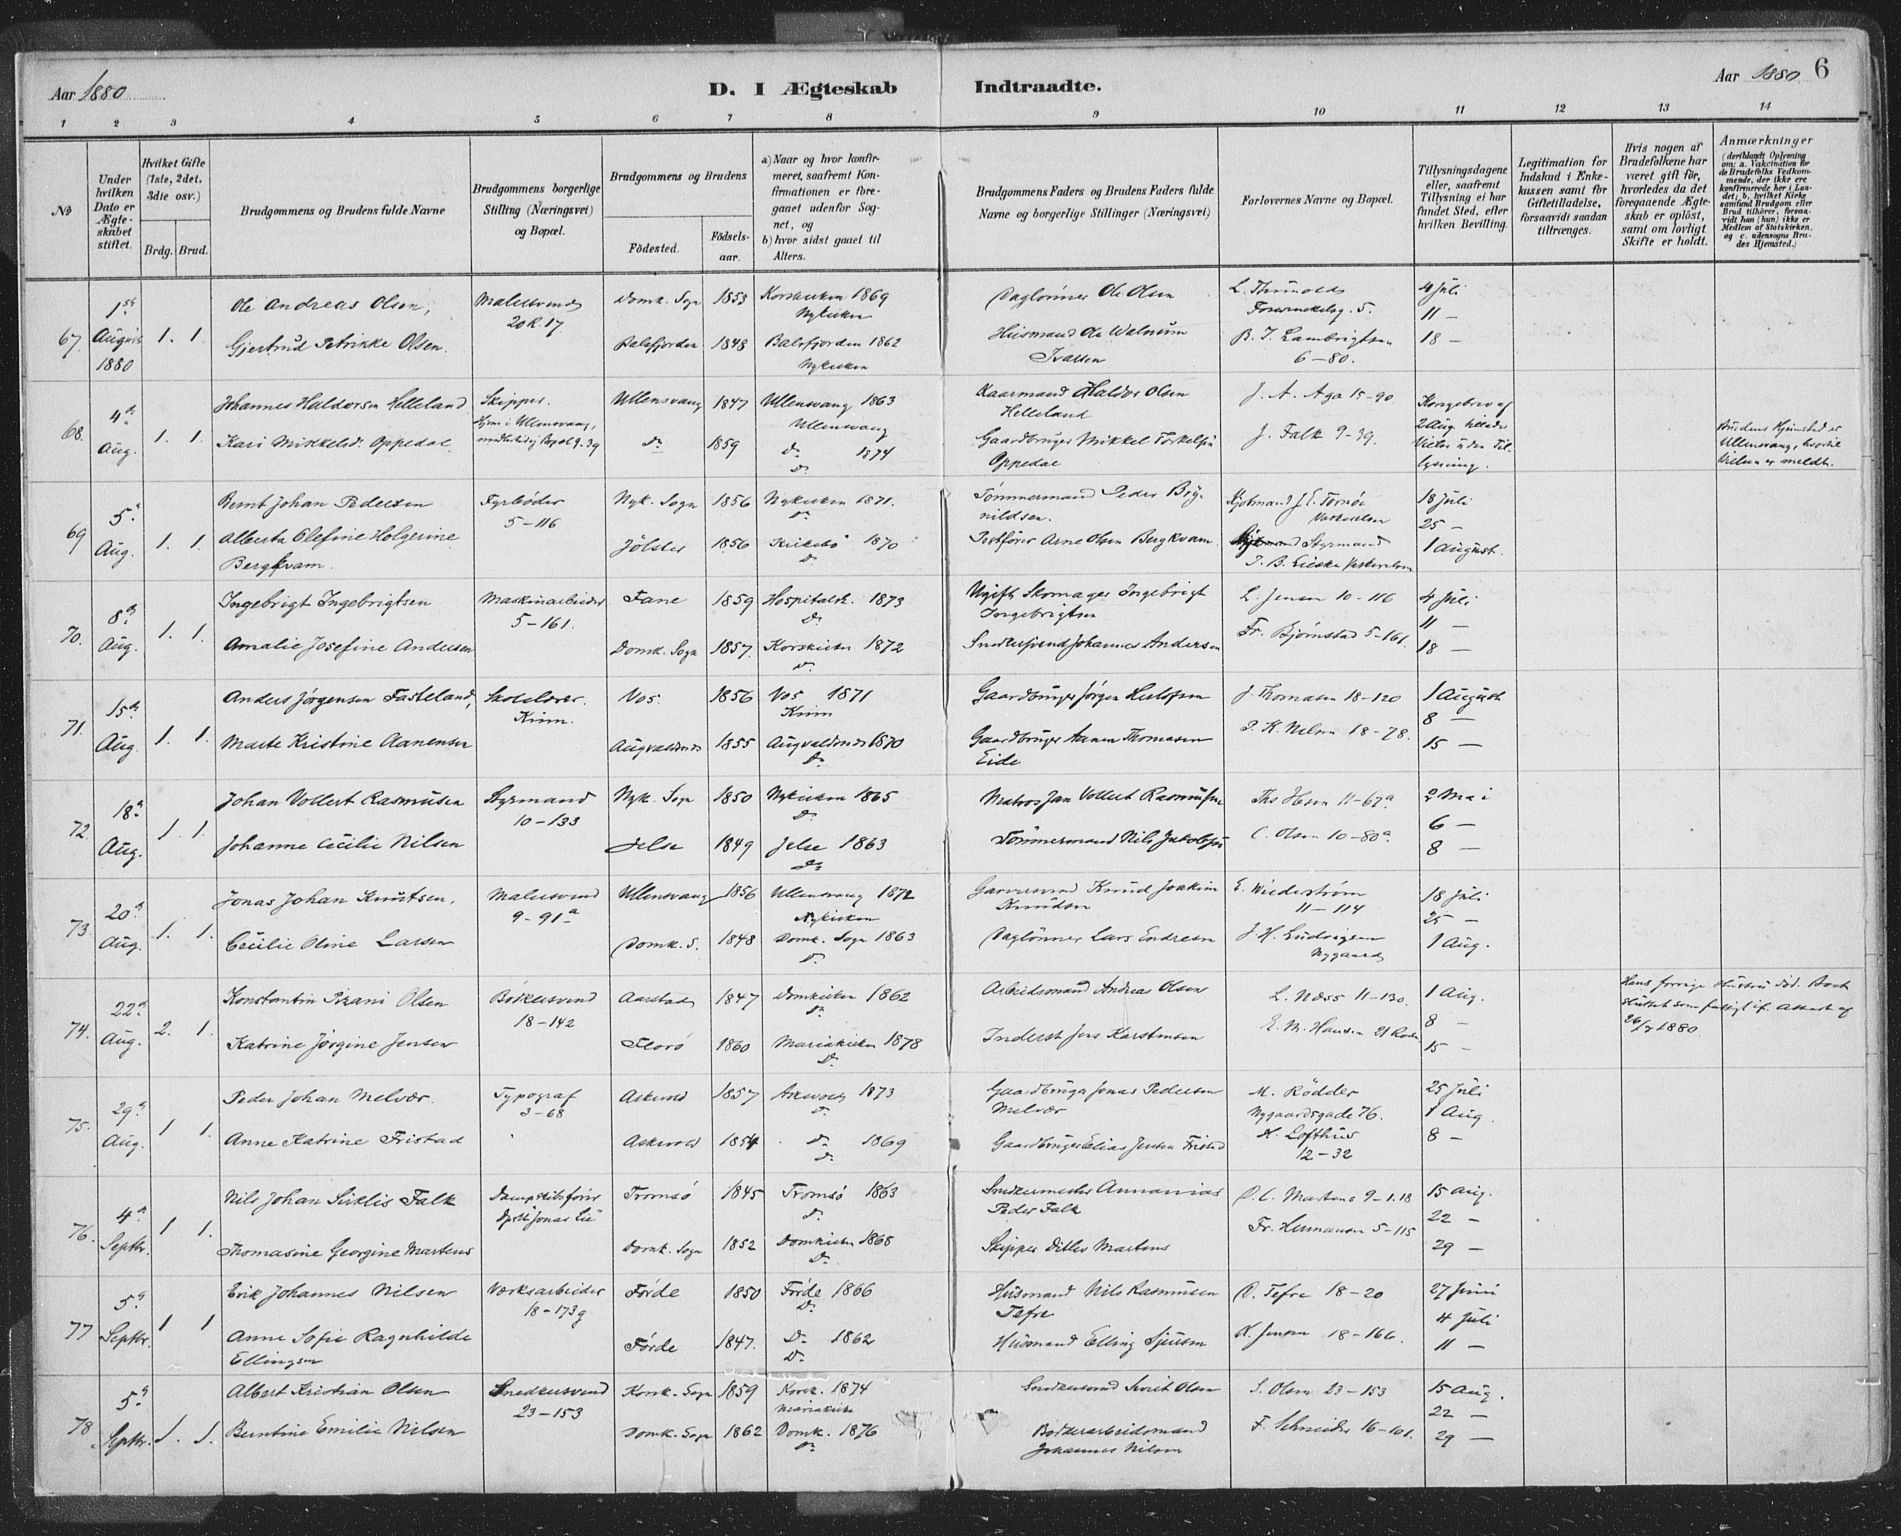 Aar 1880
D. I Ægteskab Indtraadte.
Aar 1880 6
1 2 3 4 5 6 7 8 9 10 11 12 13 14
No
Under hvilken Dato er Ægteskabet stiftet.
Hvilket Gifte (1ste, 2det, 3die osv.)
Brdg. Brud.
Brudgommens og Brudens fulde Navne
Brudgommens borgerlige Stilling (Næringsvei) og Bopæl.
Brudgommens og Brudens
Födested.
Födselsaar.
a) Naar og hvor konfirmeret, saafremt Konfirmationen er foregaaet udenfor Sognet, og
b) hvor sidst gaaet til Alters.
Brudgommens Faders og Brudens Faders fulde Navne og borgerlige Stillinger (Næringsvei)
Forlovernes Navne og Bopæl.
Tillysningsdagene eller, saafremt Tillysning ei har fundet Sted, efter hvilken Bevilling.
Legitimation for Indskud i Enkekassen samt for Giftetilladelse, forsaavidt saadan tiltrænges.
Hvis nogen af Brudefolkene har været gift för, hvorledes da det foregaaende Ægteskab er oplöst, samt om lovligt Skifte er holdt.
Anmærkninger
(deriblandt Oplysning om: a. Vakcination for de Brudefolks Vedkommende, der ikke ere konfirmerede her i Landet; b. hvilket Kirkesamfund Brudgom eller Brud tilhörer, forsaavidt han (hun) ikke er Medlem af Statskirken, og c. udensogns Brudes Hjemsted.)
67. 1st August 1880 1. 1.
Ole Andreas Olsen, Malersvend 20 R. 17 Domk. Sogn 1853 Korskirken 1869 Nykirken Daglönner Ole Olsen 5. 4 Juli
Gjertrud Petrikke Olsen. Balsfjorden 1848 Balsfjorden 1862 Nykirken Husmand Ole B. T. Lambrigtsen 6–80. 11 – 18 –
68. 4d Aug. 1. 1.
Johannes Haldorsen Helleland Skipper. Ullensvang 1847 Ullensvang 1863 Ullensvang Haldor Olsen Helleland J. A. Aga 15–90 Kongebrev af 2 Aug.
Kari Mikkelsd. Oppedal 9.39 do 1859 Do 1874 Do Gaardbruger Mikkel Torkelsen Oppedal J. Falk 9–39. Vielse uden Tillysning.
Brudens Hjemsted er Ullensvang, hvortil Vielsen er meldt.
69 5d Aug. 1. 1.
Bernt Johan Pedersen Fyrböder 5–116 Nyk. Sogn 1856 Nykirken 1871. Do Tömmermand Peder Brynildsen. J. E. Tornöe 18 Juli 25 –
Alberta Olefine Holgerine Bergkvam. Jölster 1856 Kirkebö 1870 Do Postförer Arne Olsen Bergkvam. Styrmand 1 August.
70. 8d Aug. 1. 1.
Ingebrigt Ingebrigtsen Maskinarbeider 5–161. Fane 1859 Hospitalsk. 1873 Do Ugift Skomager Ingebrigt Ingebrigtsen L. Jensen 10–116 4 Juli 11 –
Amalie Josefine Andersen Domk. Sogn 1857. Korskirken 1872 Do Snedkersvend Johannes Andersen Fr. Bjørnstad 5–161. 18 –
71. 15d Aug. 1. 1.
Anders Jörgensen Fasteland, Skolelærer. Vos. 1856 Vos 1871 Gaardbruger Jörgen J. Thomasen 18–120 1 August 8 –
Marte Kristine Aanensen Augvaldsnes 1855 Augvaldsnes 1870 Do Gaardbruger Aanen Thomasen Eide Nilsen 18–78. 15 –
72. 18d Aug. 1. 1.
Johan Vollert Rasmusen Styrmand 10–133 Nyk. Sogn 1850 Nykirken 1865 Do Matros Jan Vollert Rasmusen 11–67a 2 Mai 6 –
Johanne Cecilie Nilsen Jelse 1849 Jelse 1863 Do Tömmermand Nils Jakobsen C. Olsen 10–80a. 8 –
73 20d Aug. 1. 1.
Jonas Johan Knutsen, Malersvend 9–91a Ullensvang 1856 Ullensvang 1872 Nykirken Garversvend Knud Joakim Knudsen E. Wiederström 11–114 18 Juli 25 –
Cecilie Oline Larsen Domk. S. 1848 Domk. Sogn 1863 Do Daglönner Lars Endresen J. H. Ludvigsen Nygaard 1 Aug.
74. 22d Aug. 2. 1.
Konstantin Pirani Olsen Bökkersvend 18–142 Aarstad 1847 Domkirken 1862 Do Arbeidsmand Andreas Olsen L. Næss 11–130. 1 Aug. 8 –
Katrine Jörgine Jensen Florö 1860 Mariakirken 1878 Do Inderst Jens Karstensen E. M. Hansen 21 Rode 15 –
Hans forrige Hustru död. Boet sluttet som fattigt if. Attest af 26/7 1880.
75. 29d Aug. 1 1.
Peder Johan Melvær. Typograf 3–68 Askevold 1857 Askevold 1873 Do Gaardbruger Jonas Pedersen Melvær M. Rödder Nygaardsgade 76. 25 Juli 1 Aug.
Anne Katrine Fristad Askevold 1854 Do 1869 Do Gaardbruger Elias Jensen Fristad H. Lofthus 12–32 8 –
76. 4d Septbr. 1 1.
Nils Johan Falk Dampskibsförer Dpsk. "Jonas Lie" Tromsö 1845 Tromsö 1863 Do Snedkermester Annanias Peder Falk O. C. Martens 9–118 15 Aug. 22 –
Thomasine Georgine Martens Domk. Sogn 1852 Domkirken 1868 Do Skipper Ditlev Martens Fr. Hermansen 5–115 29 –
77 5d Septbr. 1 1
Erik Johannes Nilsen Værksarbeider 18–173g Förde 1850 Förde 1866 Do Husmand Nils Rasmusen Tefre O. Tefre 18–20 27 Juni 4 Juli
Anne Sofie Ragnhilde Ellingsen Förde 1847. Do 1862 Do Husmand Elling Sjursen K. Jensen 18–166. 11 –
78 5d Septbr. 1. 1.
Albert Kristian Olsen Snedkersvend 23–153 Korsk. Sogn 1859 Korsk. 1874 Mariakirke Snedkersvend Sivert Olsen S. Olsen 23–153 15 Aug. 22 –
Berntine Emilie Nilsen Domk. Sogn 1862 Domk. 1876 Do Bökkerarbeidsmand Johannes Nilsen F. Schneider 16–101. 29 –